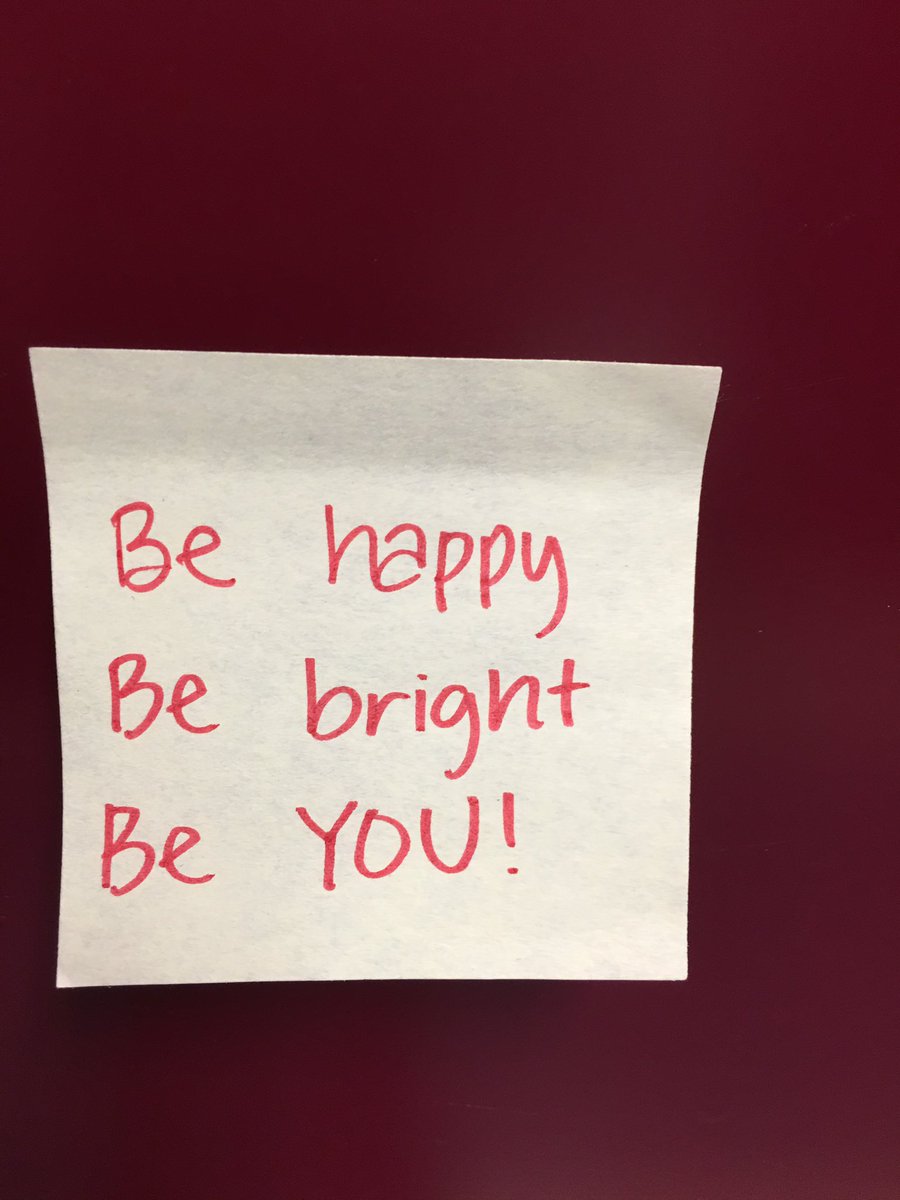 Be happy
Be bright
Be YOU!